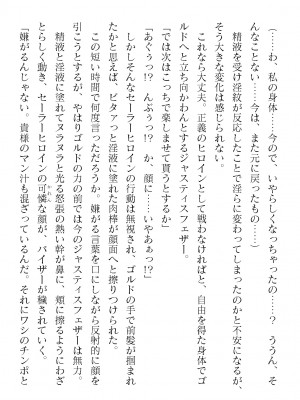 （……わ、私の身体……今ので、いやらしくなっちゃったの……？　ううん、そ
んなことない……今は、また元に戻ったもの……）
精液を受け淫紋が反応したことで淫らに変わってしまったのかと不安になるが、
そう大きな変化は感じられない。
これなら大丈夫。正義のヒロインとして戦わなければと、自由を得た身体でゴ
ールドへと立ち向かわんとするジャスティスフェザー。
「では次はこっちで楽しませて貰うとするか」
「あぐぅっ!?　んぷぅっ!?　か、顔に……いやあぁっ!?」
しかしそんなセーラーヒロインの行動は無視され、ゴルドの手で前髪が掴まれ
たかと思えば、ビタァッと淫液に塗れた肉棒が顔面へと擦りつけられた。
この短い時間で何度言っただろうか。嫌がる言葉を口にしながら反射的に顔を
引こうとするが、やはりゴルドの力の前では今のジャスティスフェザーは無力。
精液と淫液に塗れてヌラヌラと光る怒張の熱い幹が鼻に、頬に擦るようにわざ
とらしく動き、セーラーヒロインの可憐な顔が、バイザーが穢されていく。
「嫌がるんじゃない。貴様のマン汁も混ざっているんだ。それにワシのチンポと